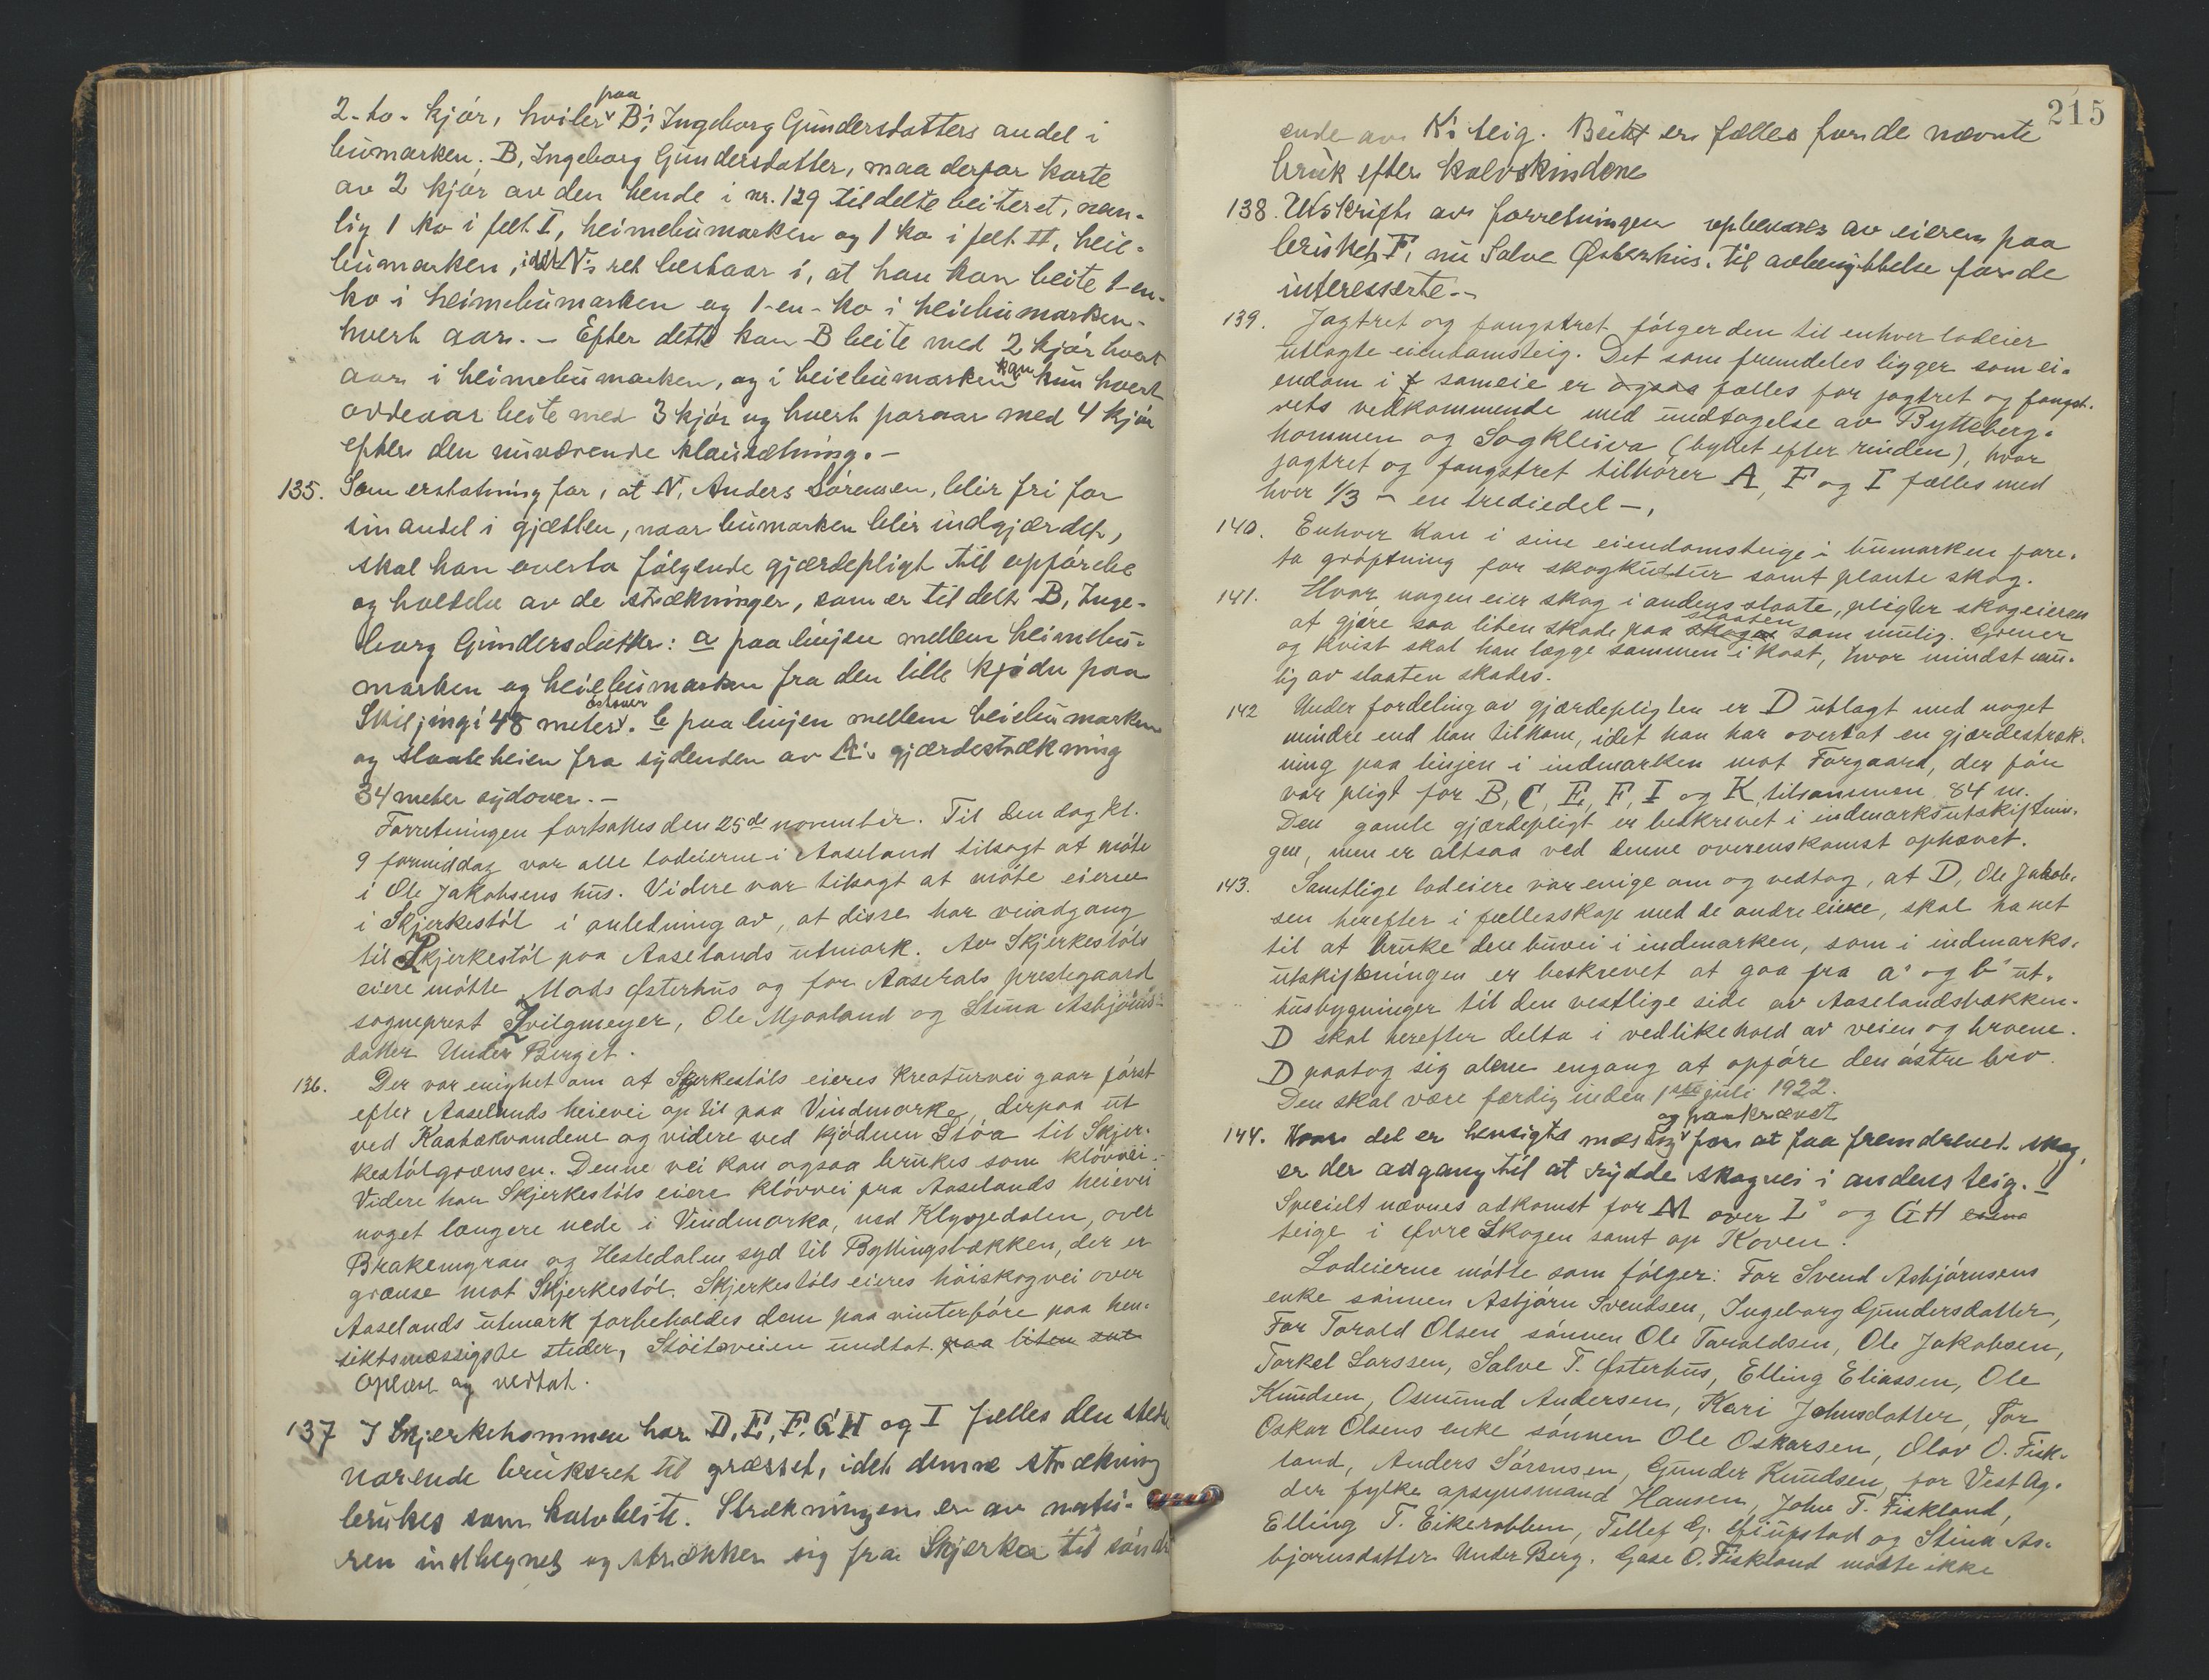 2-to- kjör, hviler paa B's, Ingeborg Gundersdatters andel i
bumarken. B, Ingeborg Gundersdatter, maa derfor korte
av 2 kjör av den hende i nr. 129 tildelte beiteret, nem-
lig 1 ko i felt I, heimebumarken og 1 ko i felt II, heie-
bumarken, idet N's ret bestaar i, at han kan beite 1-en-
ko i heimebumarken og 1-en-ko i heiebumarken-
hvert aar. - Efter dette kan B beite med 2 kjör hvert
aar i heimebumarken, og i heiebumarken kan kun hvert
oddeaar beite med 3 kjör og hvert paraar med 4 kjör
efter den nuværende klausætning. -
135. Som erstatning for, at N, Anders Sörensen, blir fri for
sin andel i gjætlen, naar bumarken blir indgjærdet,
skal han overta følgende gjærdepligt til opförelse
og holdelse av de strækninger, som er tildelt B, Inge-
borg Gundersdatter: a paa linjen mellem heimebu-
marken og heiebumarken fra den lille kjödn paa
Skiljingi 48 meter östover. b paa linjen mellem heiebumarken
og slaateheien fra sydenden av A's gjærdestrækning
34 meter sydover. -
Forretningen fortsattes den 25de november. Til den dag kl.
9 formiddag var alle lodeierne i Aaseland tilsagt at möte
i Ole Jakobsens hus. Videre var tilsagt at möte eierne
i Skjerkestöl i anledning av, at disse har veiadgang
til Skjerkestöl paa Aaselands utmark. Av Skjerkestöls
eiere mötte Mads Østerhus og for Aaserals prestegaard
sogneprest Zvilgmeyer, Ole Mjaaland og Stina Asbjörns-
datter Under Berget.
136. Der var enighet om at Skjerkestöls eieres kreaturvei gaar först
efter Aaselands heievei op til paa Vindmorka, derpaa ut
ved Kaabækvandene og videre ved kjödnen Stöa til Skjer-
kestölgrænsen. Denne vei kan ogsaa brukes som klövvei.-
Videre har Skjerkestöls eiere klövvei fra Aaselands heievei
noget længere nede i Vindmorka, ned Klyvjedalen, over
Brakemyran og Hestedalen syd til Byttingsbækken, der er
grænse mot Skjerkestöl. Skjerkestöls eieres höiskogvei over
Aaselands utmark forbeholdes dem paa vinterföre paa hen-
siktsmæssigste steder, Stöitsveien undtat. paa liten
Oplæst og vedtat.
137 I Skjerkehommen har D, E, F, G, H og I fælles den stede
varende bruksret til græsset, idet denne strækning
brukes som kalvbeite. Strækningen er av natu-
ren indhegnet og strækker sig fra Skjerka til söndre
215
ende av K's teig. Beitet er fælles for de nævnte
bruk efter kalvskindene
138. Utskrift av forretningen opbevares av eieren paa
bruket F, nu Salve Østerhus. til avbenyttelse for de
interesserte.-
139. Jagtret og fangstret fölger den til enhver lodeier
utlagte eiendomsteig. Det som fremdeles ligger som ei-
endom i f sameie er ogsaa fælles for jagtret og fangst-
rets vedkommende med undtagelse av Bytteberg-
hommen og Sagkleiva (byttet efter rinden), hvor
jagtret og fangstret tilhörer A, F og I fælles med
hver 1/3 - en trediedel -,
140. Enhver kan i sine eiendomsteige i bumarken fore-
ta gröftning for skogkultur samt plante skog.
141. Hvor nogen eier skog i andens slaate, pligter skogeieren
at gjöre saa liten skade paa skogen slaaten som mulig. Grener
og kvist skal han lægge sammen i kast, hvor mindst mu-
lig av slaaten skades.
142 Under fordeling av gjærdepligten er D utlagt med noget
mindre end han tilkom, idet han har overtat en gjærdestræk-
ning paa linjen i indmarken motForgaard, der för
var pligt for B, C, E, F, I og K, tilsammen 84 m.
Den gamle gjærdepligt er beskrevet i indmarksutskiftnin-
gen, men er altsaa ved denne overenskomst ophævet.
143. Samtlige lodeiere var enige om og vedtog, at D, Ole Jakob-
sen herefter i fællesskap med de andre eiere, skal ha ret
til at bruke den buvei i indmarken, som i indmarks-
utskiftningen er beskrevet at gaa fra a' og b' ut-
husbygninger til den vestlige side av Aaselandsbækken.
D skal herefter delta i vedlikehold av veien og broene.
D paatog sig alene engang at opföre den östre bro.
Den skal være færdig inden 1ste juli 1922.
144. Hvor det er hensigtsmæssig og paakrævet for at faa fremdrevet skog,
er der adgang til at rydde skogvei i andens teig. -
Specielt nævnes adkomst for M over L' og G H
teige i Øvre Skogen samt op Koven.
Lodeierne mötte som fölger: For Svend Asbjörnsens
enke sönnen Asbjörn Svendsen, Ingeborg Gundersdatter,
For Torald Olsen sönnen Ole Toraldsen, Ole Jakobsen,
Torkel Larssen, Salve T. Østerhus, Elling Eliassen, Ole
Knudsen, Osmund Andersen, Kari Johnsdatter, For
Oskar Olsens enke sönnen Ole Oskarsen, Olav O. Fisk-
land, Anders Sörensen, Gunder Knudsen, for Vest Ag-
der fylke opsynsmand Hansen, John T. Fiskland,
Elling T. Eikerabben, Tellef G. Ljupstad og Stina As-
bjornsdatter Under Berg. Gase O. Fiskland mötte ikke